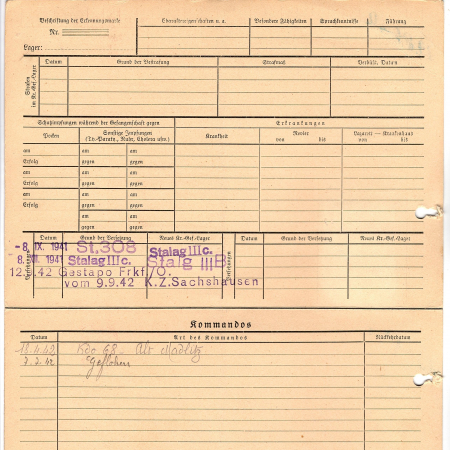 Beschriftung der Erkennungsmarke
Nr.
Lager:
Charaktereigenschaften u. a.
Besondere Fähigkeiten
Sprachkenntnisse
Führung
Strafen im Kr.-Gef.-Lager
Datum
Grund der Bestrafung
Strafmaß
Verbüßt, Datum
Schutzimpfungen während der Gefangenschaft gegen
Erkrankungen
Pocken
Sonstige Impfungen
(Ty.-Paraty., Ruhr, Cholera usw.)
Krankheit
Revier
von bis
Lazarett — Krankenhaus
von bis
am am am
Erfolg gegen gegen
am am am
Erfolg gegen gegen
am am am
Erfolg gegen gegen
am am
gegen gegen
Datum
Grund der Versetzung
Neues Kr.-Gef.-Lager
Versetzungen
Datum
Grund der Versetzung
Neues Kr.-Gef.-Lager
-8. IX. 1941 St.308 Stalag III c.
8. 1941 Stalag III c. Stalg III B
12.9.42 Gestapo Frkf./O.
vom 9.9.42 K.Z.Sachshausen
Kommandos
Datum
Art des Kommandos
Rückkehrdatum
18.4.42 Kdo 68 Alt Madlitz
Geflohen